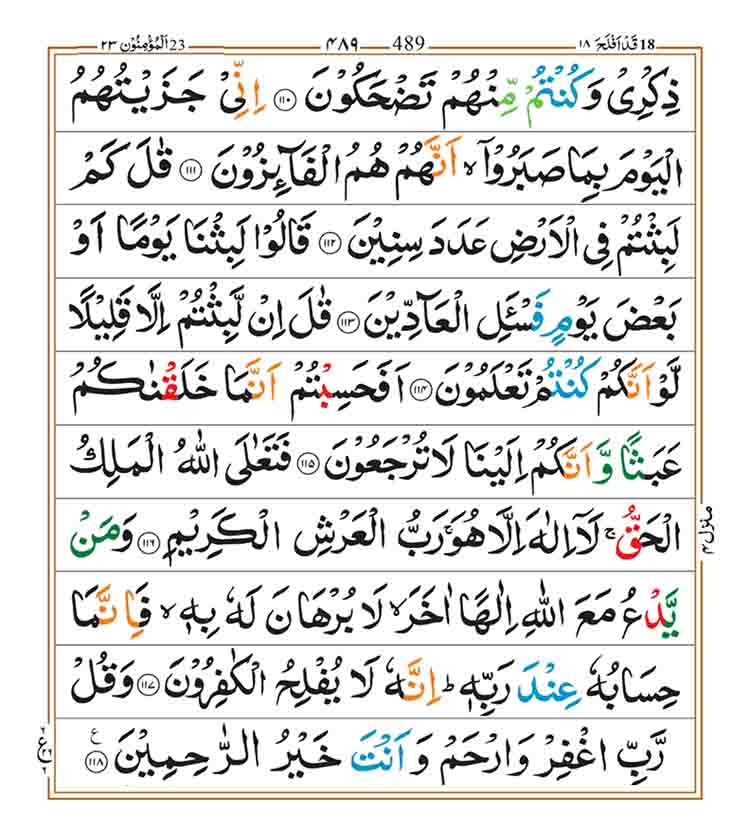 18 قَدْ اَفْلَحَ ١٨ 489 ۴۸۹ 23 اَلْمُؤْمِنُوْن ٢٣
ذِكْرِىْ وَكُنْتُمْ مِّنْهُمْ تَضْحَكُوْنَ ۝۱۱۰ اِنِّىْ جَزَيْتُهُمُ
الْيَوْمَ بِمَا صَبَرُوْۤا ۙ اَنَّهُمْ هُمُ الْفَآئِزُوْنَ ۝۱۱۱ قٰلَ كَمْ
لَبِثْتُمْ فِى الْاَرْضِ عَدَدَ سِنِيْنَ ۝۱۱۲ قَالُوْا لَبِثْنَا يَوْمًا اَوْ
بَعْضَ يَوْمٍ فَسْئَلِ الْعَآدِّيْنَ ۝۱۱۳ قٰلَ اِنْ لَّبِثْتُمْ اِلَّا قَلِيْلًا
لَّوْ اَنَّكُمْ كُنْتُمْ تَعْلَمُوْنَ ۝۱۱۴ اَفَحَسِبْتُمْ اَنَّمَا خَلَقْنٰكُمْ
عَبَثًا وَّ اَنَّكُمْ اِلَيْنَا لَا تُرْجَعُوْنَ ۝۱۱۵ فَتَعٰلَى اللّٰهُ الْمَلِكُ
الْحَقُّ ۚ لَاۤ اِلٰهَ اِلَّا هُوَ ۚ رَبُّ الْعَرْشِ الْكَرِيْمِ ۝۱۱۶ وَمَنْ
يَّدْعُ مَعَ اللّٰهِ اِلٰهًا اٰخَرَ ۙ لَا بُرْهَانَ لَهٗ بِهٖ ۙ فَاِنَّمَا
حِسَابُهٗ عِنْدَ رَبِّهٖ ؕ اِنَّهٗ لَا يُفْلِحُ الْكٰفِرُوْنَ ۝۱۱۷ وَقُلْ
رَّبِّ اغْفِرْ وَارْحَمْ وَ اَنْتَ خَيْرُ الرّٰحِمِيْنَ ۝۱۱۸ ع
منزل ۴